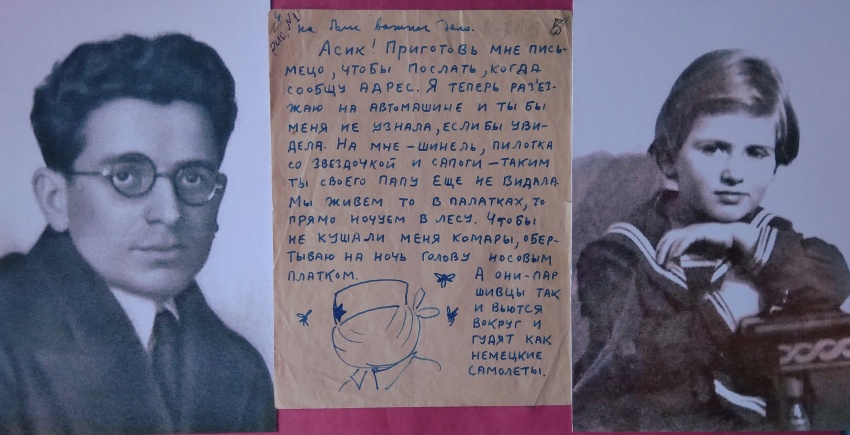 рис. №1
5
на Вас важное дело.
Асик! Приготовь мне пись-
мецо, чтобы послать, когда
сообщу адрес. Я теперь разъез-
жаю на автомашине и ты бы
меня не узнала, если бы уви-
дела. На мне – шинель, пилотка
со звездочкой и сапоги – таким
ты своего папу еще не видала.
Мы живем то в палатках, то
прямо ночуем в лесу. Чтобы
не кушали меня комары, обер-
тываю на ночь голову носовым
платком.
А они – пар
шивцы так
и вьются
вокруг и
гудят как
немецкие
самолеты.